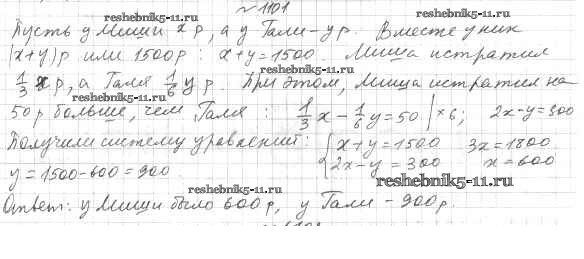 № 1101
reshebnik5-11.ru
Пусть у Миши x р, а у Гали - y р. Вместе у них
(x+y) р или 1500 р : x+y=1500 Миша истратил
reshebnik5-11.ru
1/3 x р, а Галя 1/6 y р. При этом, Миша истратил на
50 р больше, чем Галя : 1/3 x - 1/6 y = 50 | ×6; 2x-y=300
Получили систему уравнений: { x+y=1500 3x=1800
y=1500-600=900. 2x-y=300 x=600
reshebnik5-11.ru
reshebnik5-11.ru
Ответ: у Миши было 600 р, у Гали - 900 р.